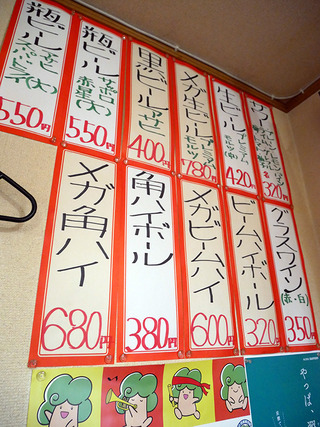 瓶ビール
アサヒ
スーパードライ(大)
550円
瓶ビール
サッポロ
赤星(大)
550円
黒ビール
アサヒ
400円
メガ生ビール
プレミアム
モルツ
780円
生ビール
プレミアム
モルツ(中)
420円
320円
メガ角ハイ
680円
角ハイボール
380円
メガビームハイ
600円
ビームハイボール
320円
グラスワイン
(赤・白)
350円
やっぱ、